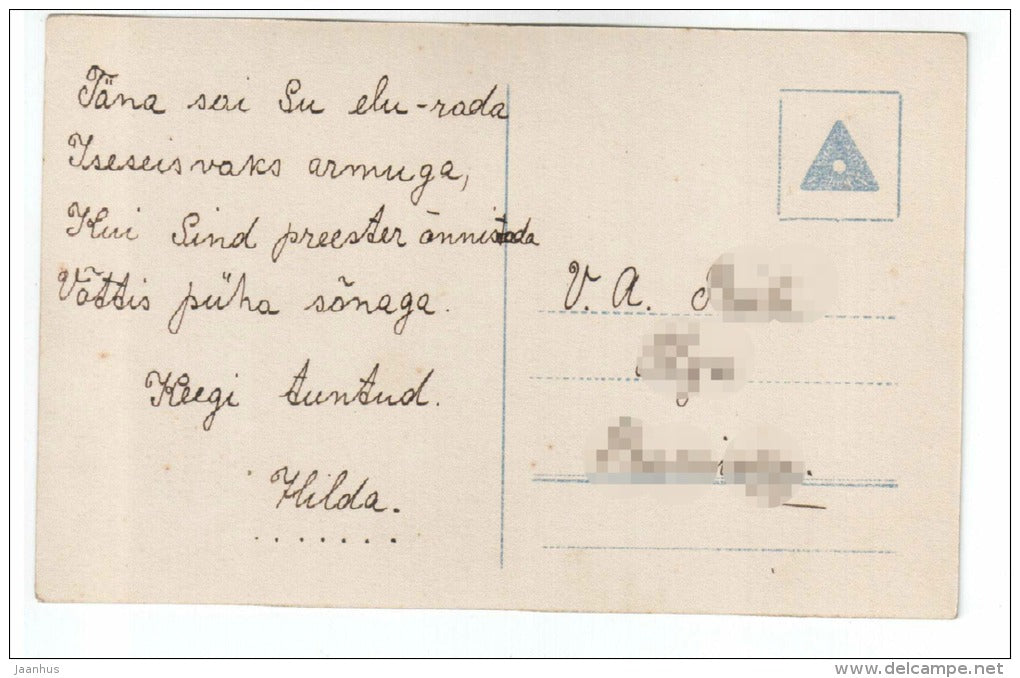 Täna sai Su elu-rada
Iseseisvaks armuga,
Kui Sind preester õnnistada
Võttis püha sõnaga.
Keegi tuntud.
Hilda.
.......
V. A.
jaanhus
www.delcampe.net